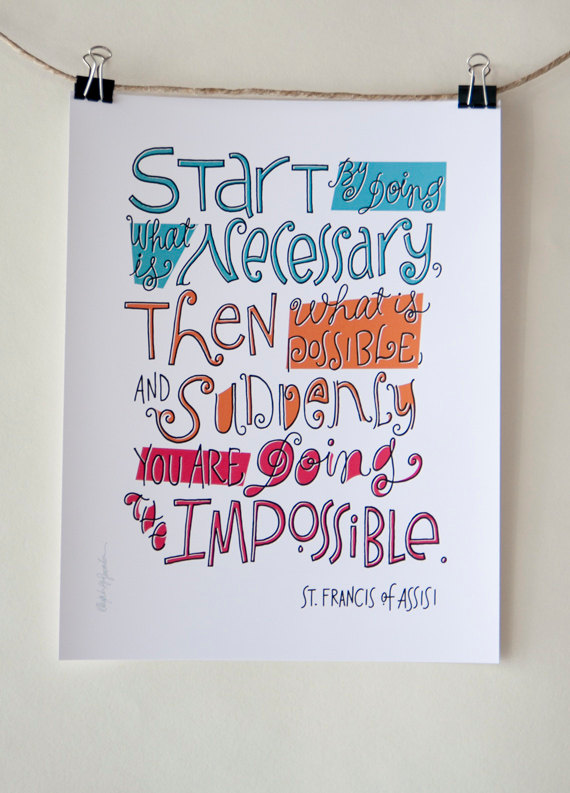 Start By Doing
What is Necessary,
Then What is Possible,
AND Suddenly
YOU ARE Doing
THE IMPOSSIBLE.
ST. FRANCIS of ASSISI